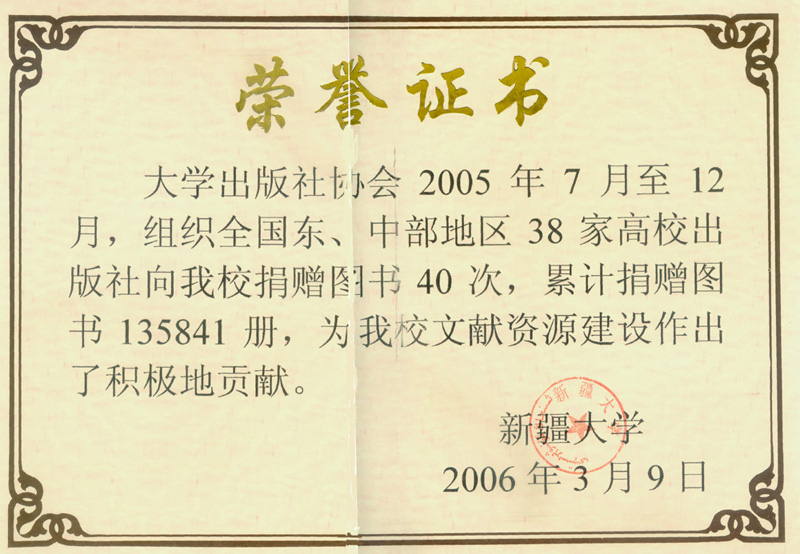 荣誉证书
大学出版社协会 2005 年 7 月至 12
月，组织全国东、中部地区 38 家高校出
版社向我校捐赠图书 40 次，累计捐赠图
书 135841 册，为我校文献资源建设作出
了积极地贡献。
新疆大学
新疆大学
2006 年 3 月 9 日